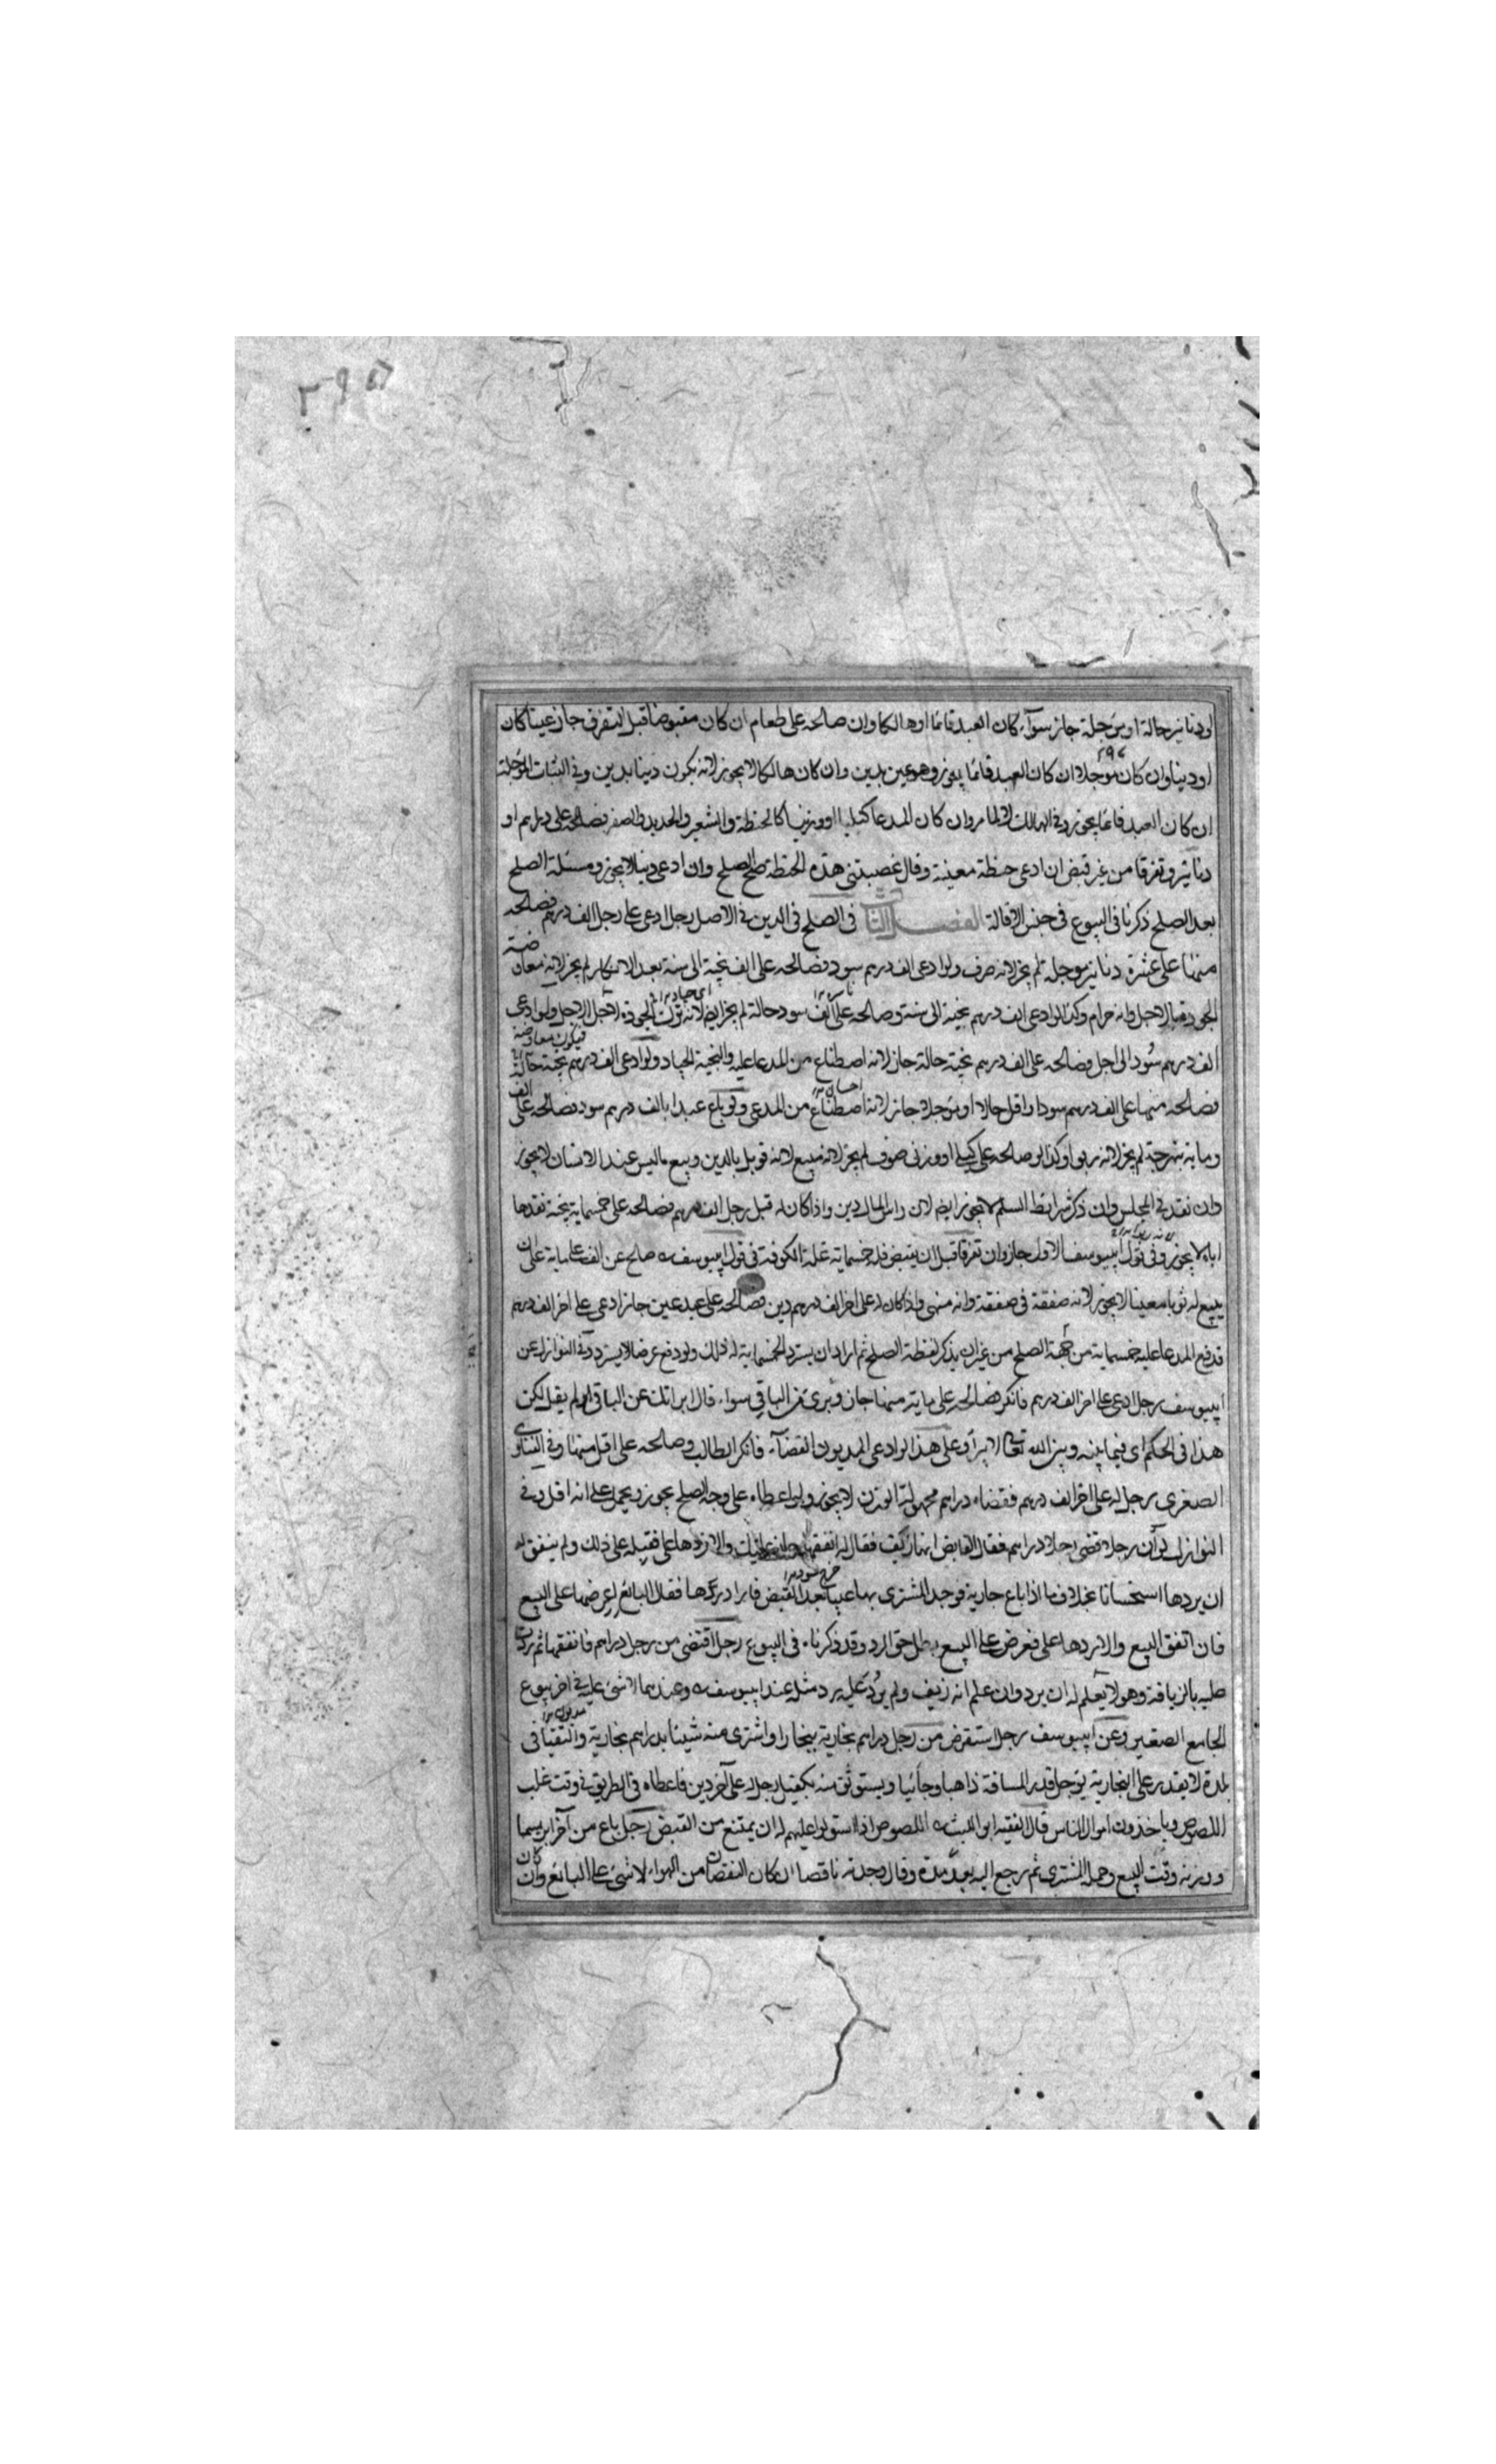 او دنانير حالة او مؤجلة جاز سوآء كان العبد قائما او هالكا وان صالحه على طعام ان كان مقبوضا قبل التفرق جاز عينا كان
او دينا وان كان موجلا ان كان العبد قائما يجوز وهو عين بدين وان كان هالكا لا يجوز لانه يكون دينا بدين وفي الثياب المؤجلة
ان كان العبد قائما يجوز وفي الهالك لا لما مر وان كان المدعا كيليا او وزنيا كالحنطة والشعير والحديد والصفر فصالحه على دراهم او
دنانير وتفرقا من غير قبض ان ادعى حنطة معينة وقال غصبتني هذه الحنطة صح الصلح وان ادعى دينا لا يجوز ومسئلة الصلح
بعد الصلح ذكرنا في البيوع في جنس الاقالة الفصل الثاني في الصلح في الدين في الاصل رجل ادعى على رجل الف درهم فصالحه
منها على عشرة دنانير موجلة لم يجز لانه صرف ولو ادعى الف درهم سود فصالحه على الف نجية الى سنة بعد الانكار لم يجز لانه معاوضة
الجودة بالاجل وانه حرام وكذا لو ادعى الف درهم نجية الى سنة وصالحه على الف سود حالة لم يجز ايضا لانه ترك الجودة لاجل الاجل ولو ادعى
فيكون معاوضة
الف درهم سود الى اجل فصالحه على الف درهم نجية حالة جاز لانه اصطناع من المدعا عليه والنجية الجياد ولو ادعى الف درهم نجية حالة
فصالحه منها على الف درهم سود او اقل حالا او مؤجلا جاز لانه اصطناع من المدعي ولو باع عبدا بالف درهم سود فصالحه على الف
وماية نبهرجة لم يجز لانه ربوا وكذا لو صالحه على كيلي او وزني موصوف لم يجز لانه مبيع لانه قوبل بالدين وبيع ما ليس عند الانسان لا يجوز
وان نقد في المجلس وان ذكر شرايط السلم لا يجوز ايضا لان راس المال دين واذا كان له قبل رجل الف درهم فصالحه على خمسماية نجية نقدها
اياه لا يجوز وفي قول ابيوسف الاول جاز وان تفرقا قبل ان يقبض فله خمسماية غلة الكوفة في قول ابيوسف صالح عن الف على ماية على ان
يبيع له ثوبا معينا لا يجوز لانه صفقة في صفقة وانه منهي واذا كان له على اخر الف درهم دين فصالحه على عبد عين جاز ادعى على اخر الف درهم
قدفع المدعا عليه خمسماية من جهة الصلح من غير ان يذكر لفظة الصلح ثم اراد ان يسترد الخمسماية له ذلك ولو دفع عرضا لا يسترد وفي النوازل عن
ابيوسف رجل ادعى على اخر الف درهم فانكر فصالحه على ماية منها جاز وبرئ عن الباقي سواء قال ابراتك عن الباقي او لم يقل لكن
هذا في الحكم اي فيما بينه وبين الله تعالى لا يبرأ وعلى هذا لو ادعى المديون القضآء فانكر الطالب وصالحه على اقل منها وفي الفتاوى
الصغرى رجل له على اخر الف درهم فقضاه دراهم مجهولة الوزن لا يجوز ولو اعطاه على وجه الصلح يجوز ويحمل على انه اقل وفي
النوازل لو ان رجلا قضى رجلا دراهم فقال القابض انها زيف فقال له انفقها والا فردها على فقبله على ذلك ولم ينفق له
ان يردها استحسانا بخلاف ما اذا باع جارية فوجد المشتري بها عيبا بعد القبض فاراد ردها فقال البائع اعرضها على البيع
فان اتفق البيع والا ردها على فعرض على البيع بطل حق الرد وقد ذكرناه في البيوع رجل اقتضى من رجل دراهم فانفقها ثم ردت
عليه بالزيافة وهو لا يعلم له ان يرد وان علم انه زيف ولم يرد عليه يرد مثله عند ابيوسف وعندهما لا شئ عليه في اخر بيوع
الجامع الصغير وعن ابيوسف رجل استقرض من رجل دراهم بخارية ببخارا او اشترى منه شيئا بدراهم بخارية والتقيا في
بلدة لا يقدر على البخارية يؤجل قدر المسافة ذاهبا وجائيا ويستوثق منه بكفيل رجل له على آخر دين فاعطاه في الطريق في وقت غلب
اللصوص وياخذون اموال الناس قال الفقيه ابو الليث اللصوص اذا استولوا عليهم له ان يمتنع من القبض رجل باع من آخر ابريسما
ووزنه وقت البيع وحمله المشتري ثم رجع اليه بعد مدة وقال وجدته ناقصا ان كان النقصان من الهواء لا شئ على البائع وان كان